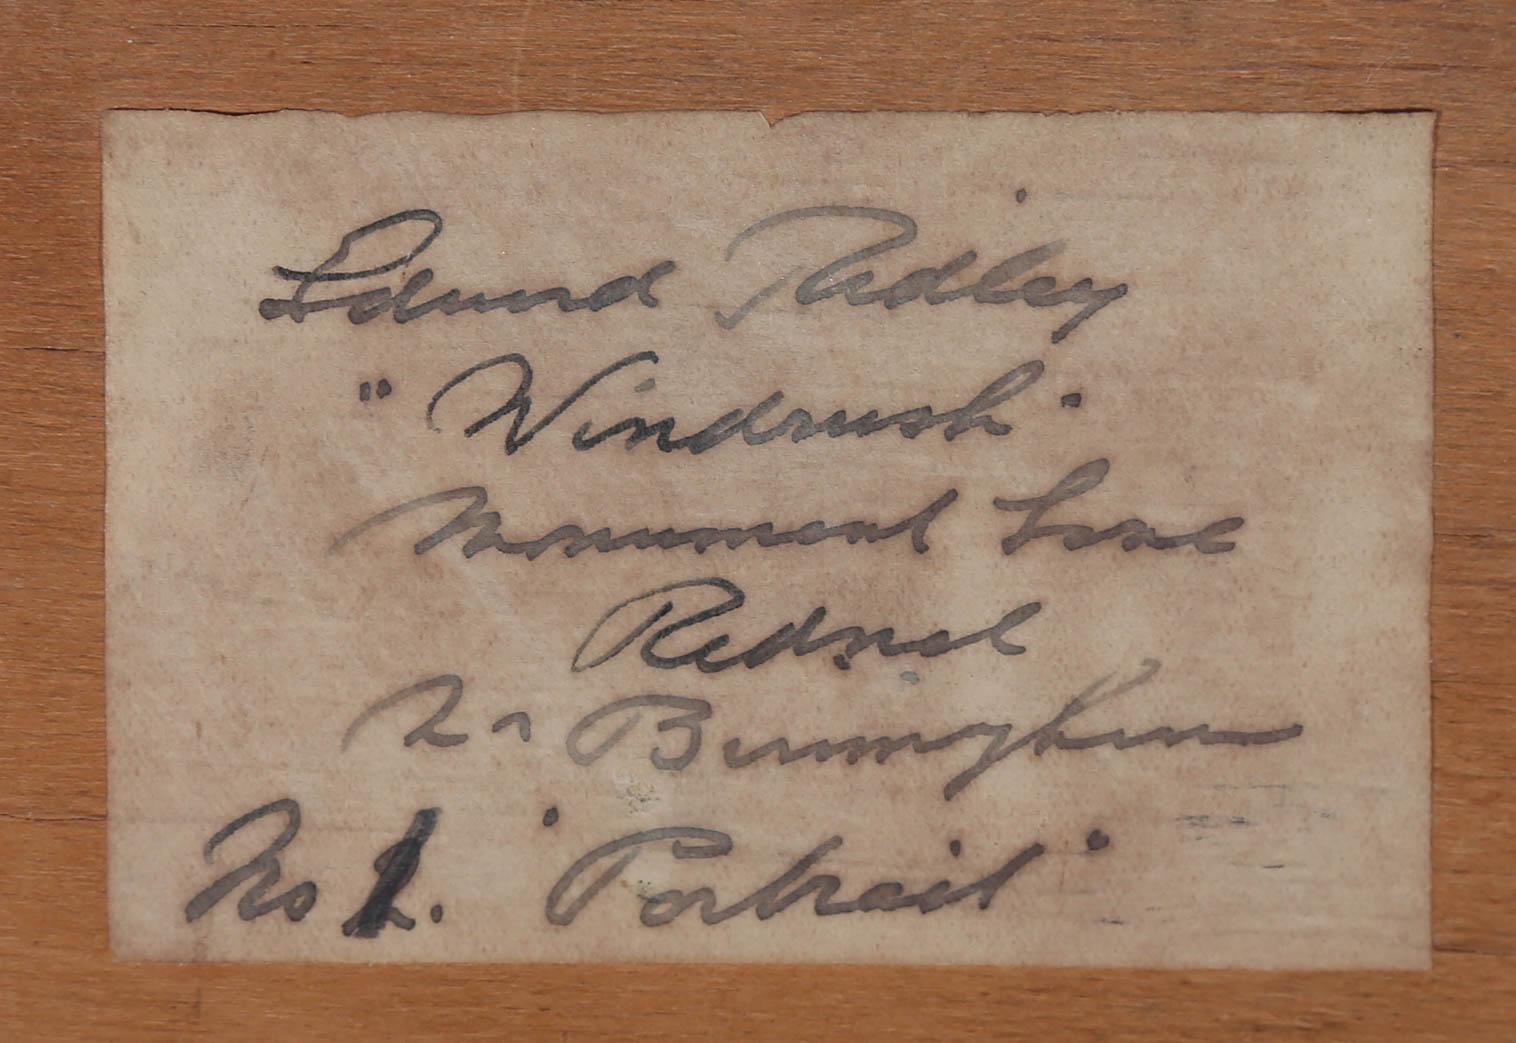 Edward Ridley
"Windrush"
Monument Lane
Rednal
Nr Birmingham
No 1. "Portrait"